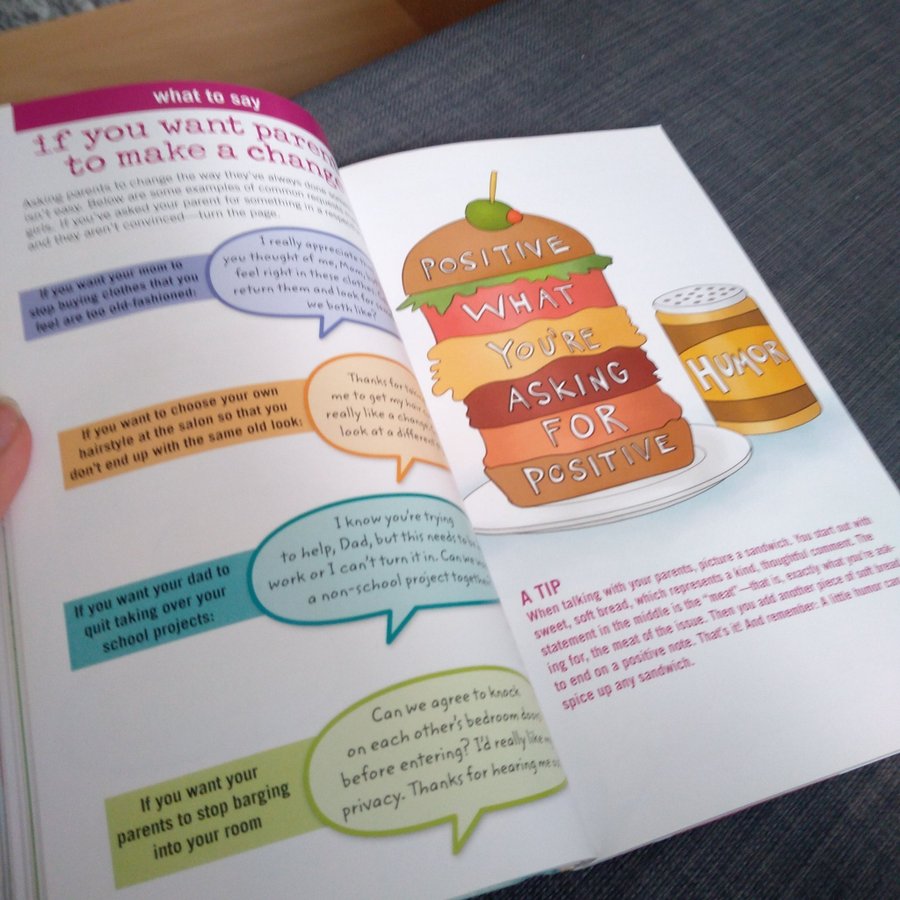 what to say
if you want
to make a change
Asking parents to change the way they've always done
isn't easy. Below are some examples of common requests
girls. If you've asked your parent for something in a
and they aren't convinced—turn the page.
If you want your mom to
stop buying clothes that you
feel are too old-fashioned:
I really appreciate
you thought of me, Mom,
feel right in these clothes.
return them and look for
we both like?
If you want to choose your own
hairstyle at the salon so that you
don't end up with the same old look:
Thanks for
me to get my
really like a change.
look at a different
If you want your dad to
quit taking over your
school projects:
I know you're trying
to help, Dad, but this needs to
work or I can't turn it in. Can we
a non-school project together
If you want your
parents to stop barging
into your room
Can we agree to knock
on each other's bedroom
before entering? I'd really like
privacy. Thanks for hearing me
POSITIVE
WHAT
YOU'RE
ASKING
FOR
POSITIVE
HUMOR
A TIP
When talking with your parents, picture a sandwich. You start out with
sweet, soft bread, which represents a kind, thoughtful comment. The
statement in the middle is the "meat"—that is, exactly what you're ask-
ing for, the meat of the issue. Then you add another piece of soft bread
to end on a positive note. That's it! And remember: A little humor can
spice up any sandwich.